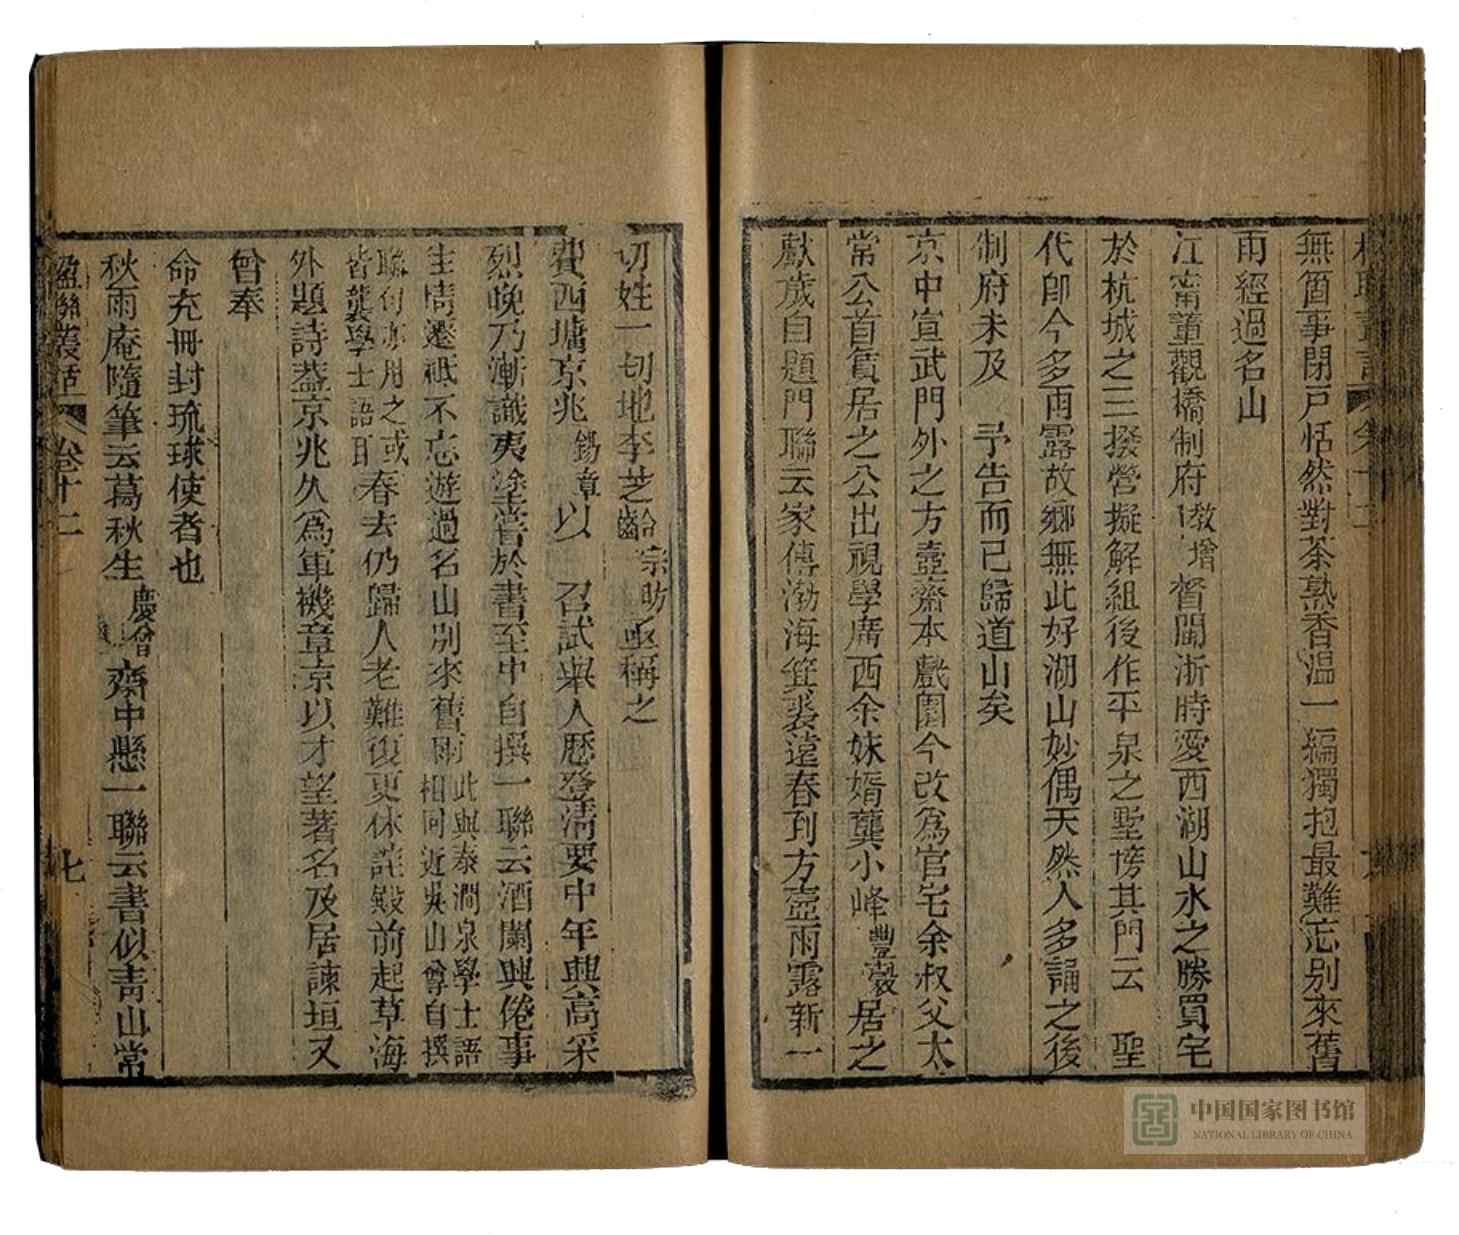 無箇事閉戸恬然對茶熟香温一編獨抱最難忘別來舊
雨經過名山
江甯董觀橋制府教增督閩浙時愛西湖山水之勝買宅
於杭城之三撥營擬解組後作平泉之墅榜其門云 聖
代卽今多雨露故鄉無此好湖山妙偶天然人多誦之後
制府未及 予告而已歸道山矣
京中宣武門外之方壺齋本戲園今改爲官宅余叔父太
常公首賃居之公出視學廣西余妹婿龔小峰豐穀居之
獻歲自題門聯云家傳渤海箕裘遠春到方壺雨露新一
切姓一切地李芝齡宗昉亟稱之
費西墉京兆錫章以 召試舉人歷登清要中年興高采
烈晚乃漸識夷塗嘗於書室中自撰一聯云酒闌興倦事
生情遷祇不忘遊過名山別來舊雨此與泰澗泉學士語相同近吳山尊自撰
聯句亦用之或皆襲學士語耶春去仍歸人老難復更休詫殿前起草海
外題詩葢京兆久爲軍機章京以才望著名及居諫垣又
曾奉
命充冊封琉球使者也
秋雨庵隨筆云葛秋生慶曾齋中懸一聯云書似青山常
楹聯叢話 卷十二 七
中国国家图书馆
NATIONAL LIBRARY OF CHINA